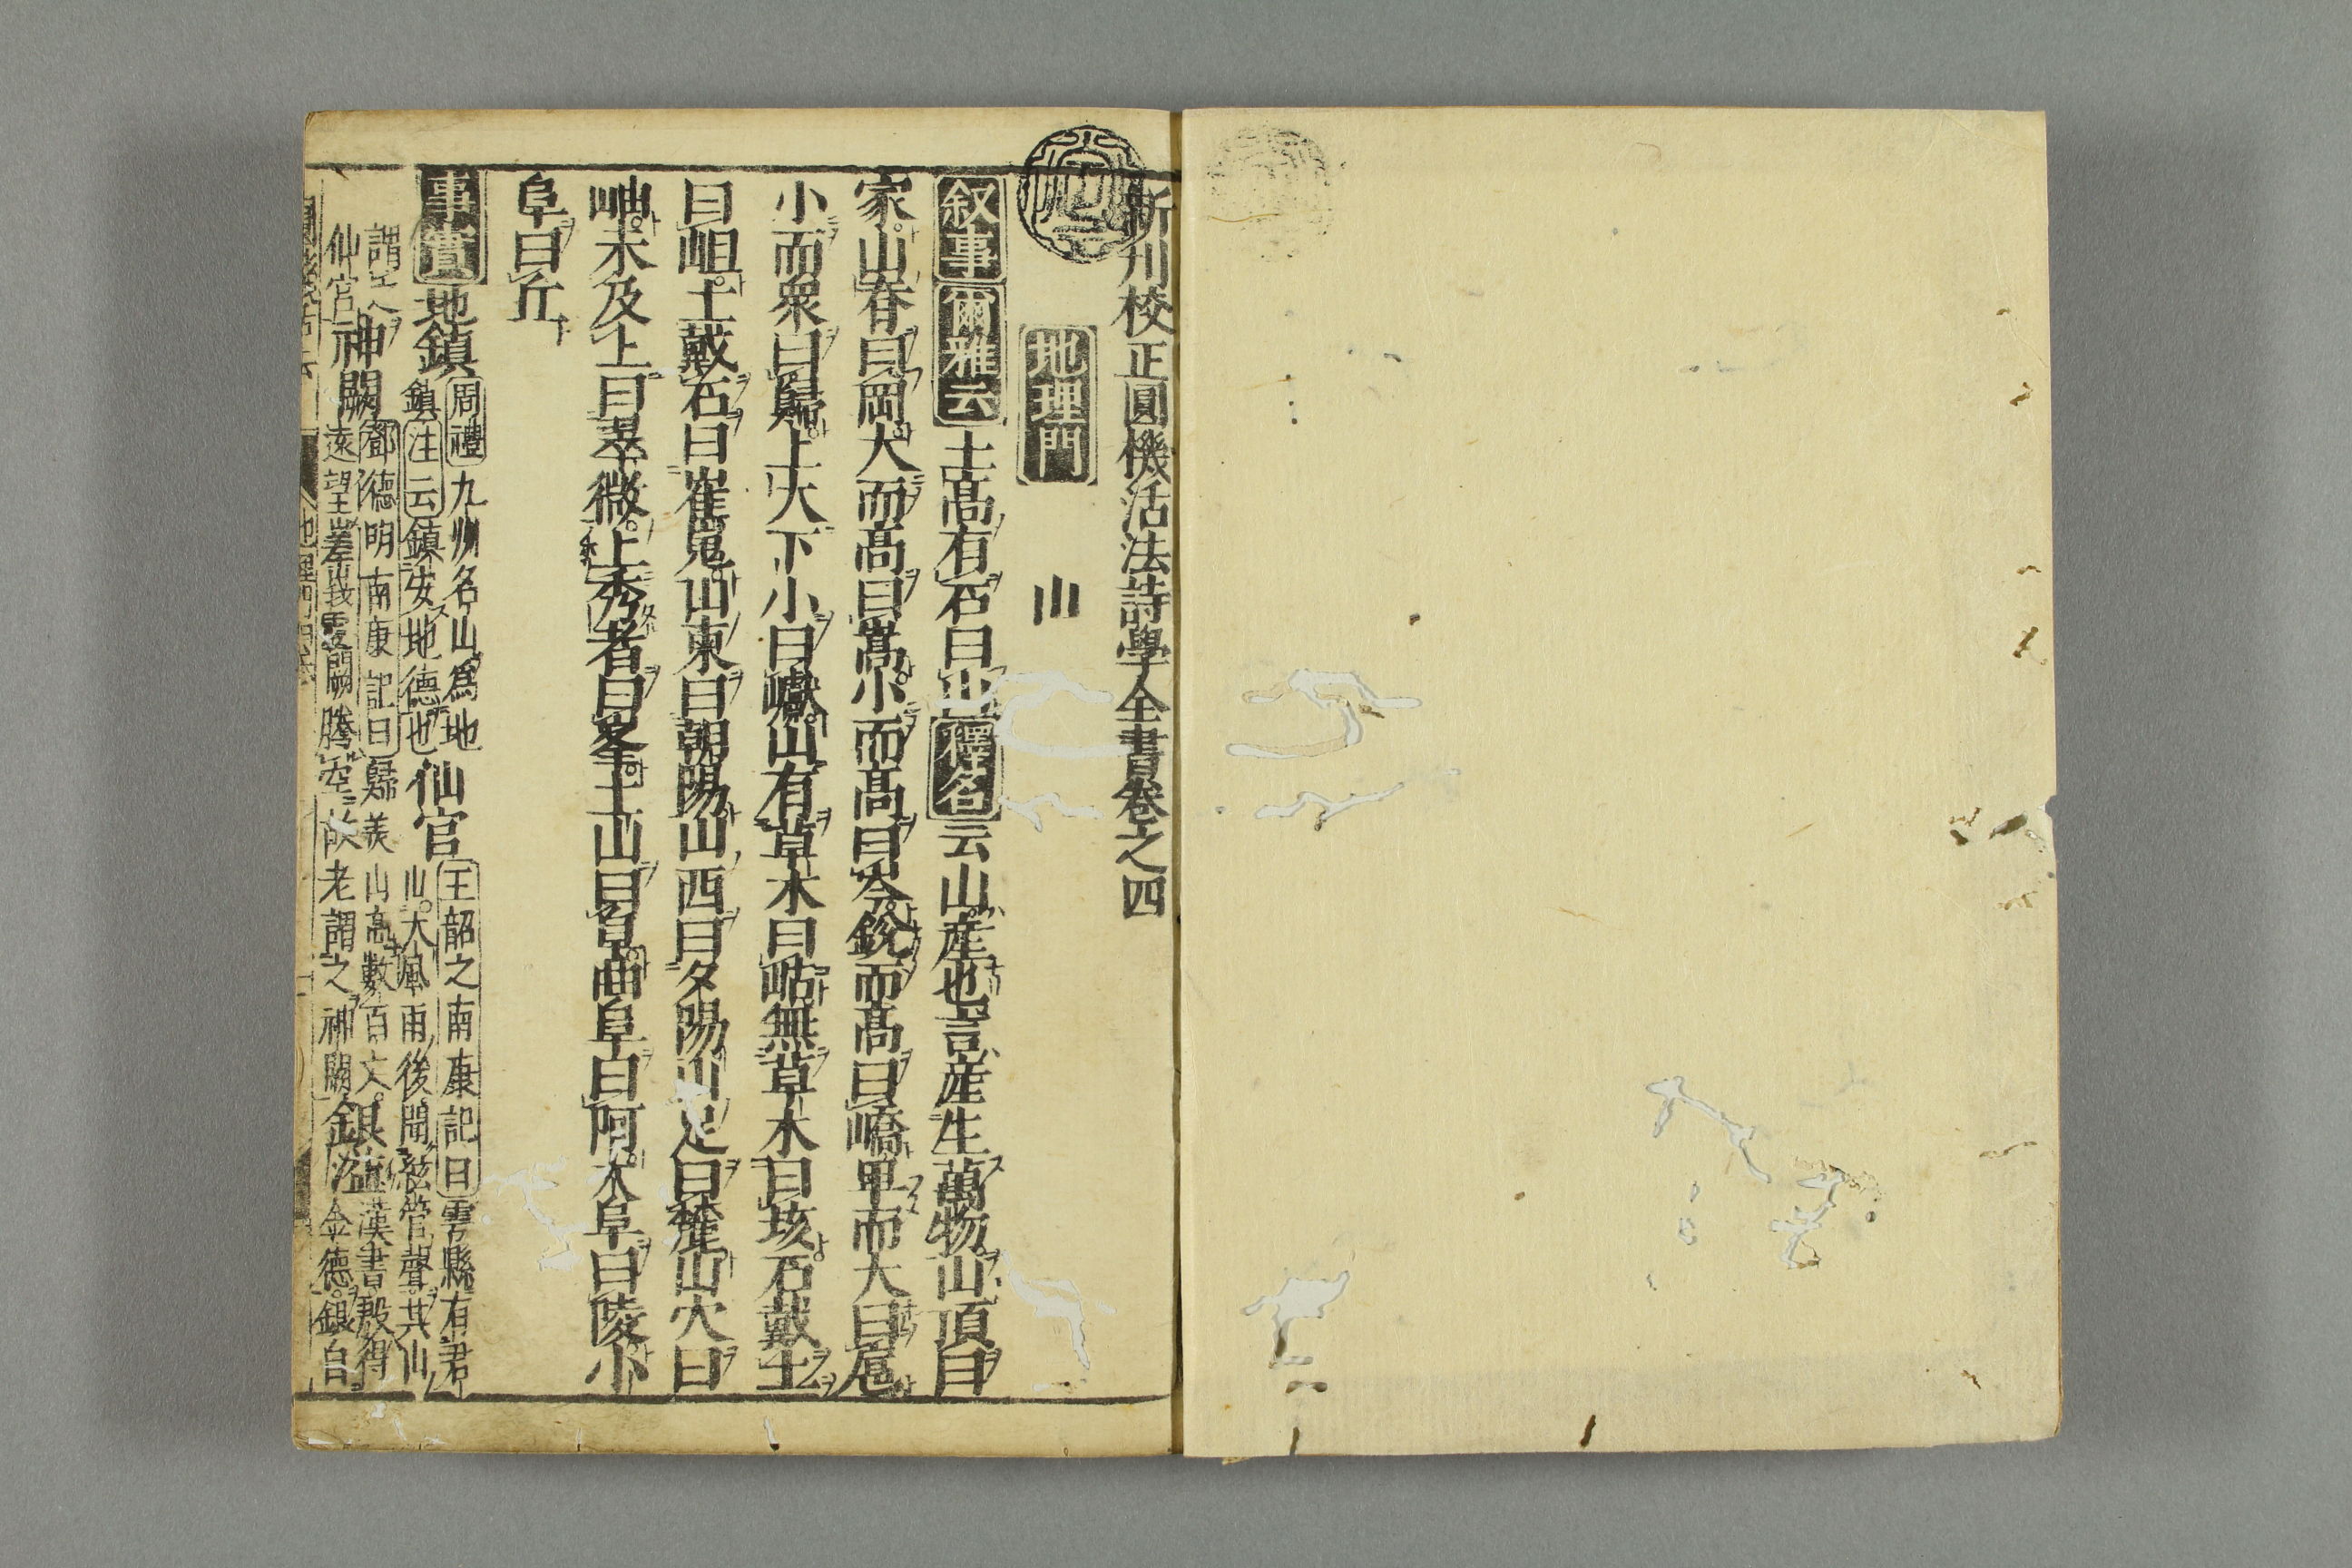 新刋校正圓機活法詩學全書卷之四
地理門
山
叙事 爾雅云 土高有石曰山 釋名 云山產也言產生萬物山頂曰
冢山脊曰岡大而高曰嵩小而高曰岑銳而高曰嶠卑而大曰扈
小而衆曰巋上大下小曰巘山有草木曰岵無草木曰垓石戴土
曰岨土戴石曰崔嵬山東曰朝陽山西曰夕陽山足曰麓山穴曰
岫未及上曰翠微上秀者曰峯土山曰阜曲阜曰阿大阜曰陵小
阜曰丘
事實 地鎮 周禮 九州名山爲地
鎮 注云 鎮安地德也 仙官 王韶之南康記曰 雩縣有君
山大風雨後聞絃管聲其山
謂之 仙官 神闕 鄧德明南康記曰 歸美山高數百丈
遠望嵳峩雲闕騰空故老謂之神闕 銀溢 漢書殷得
金德銀自